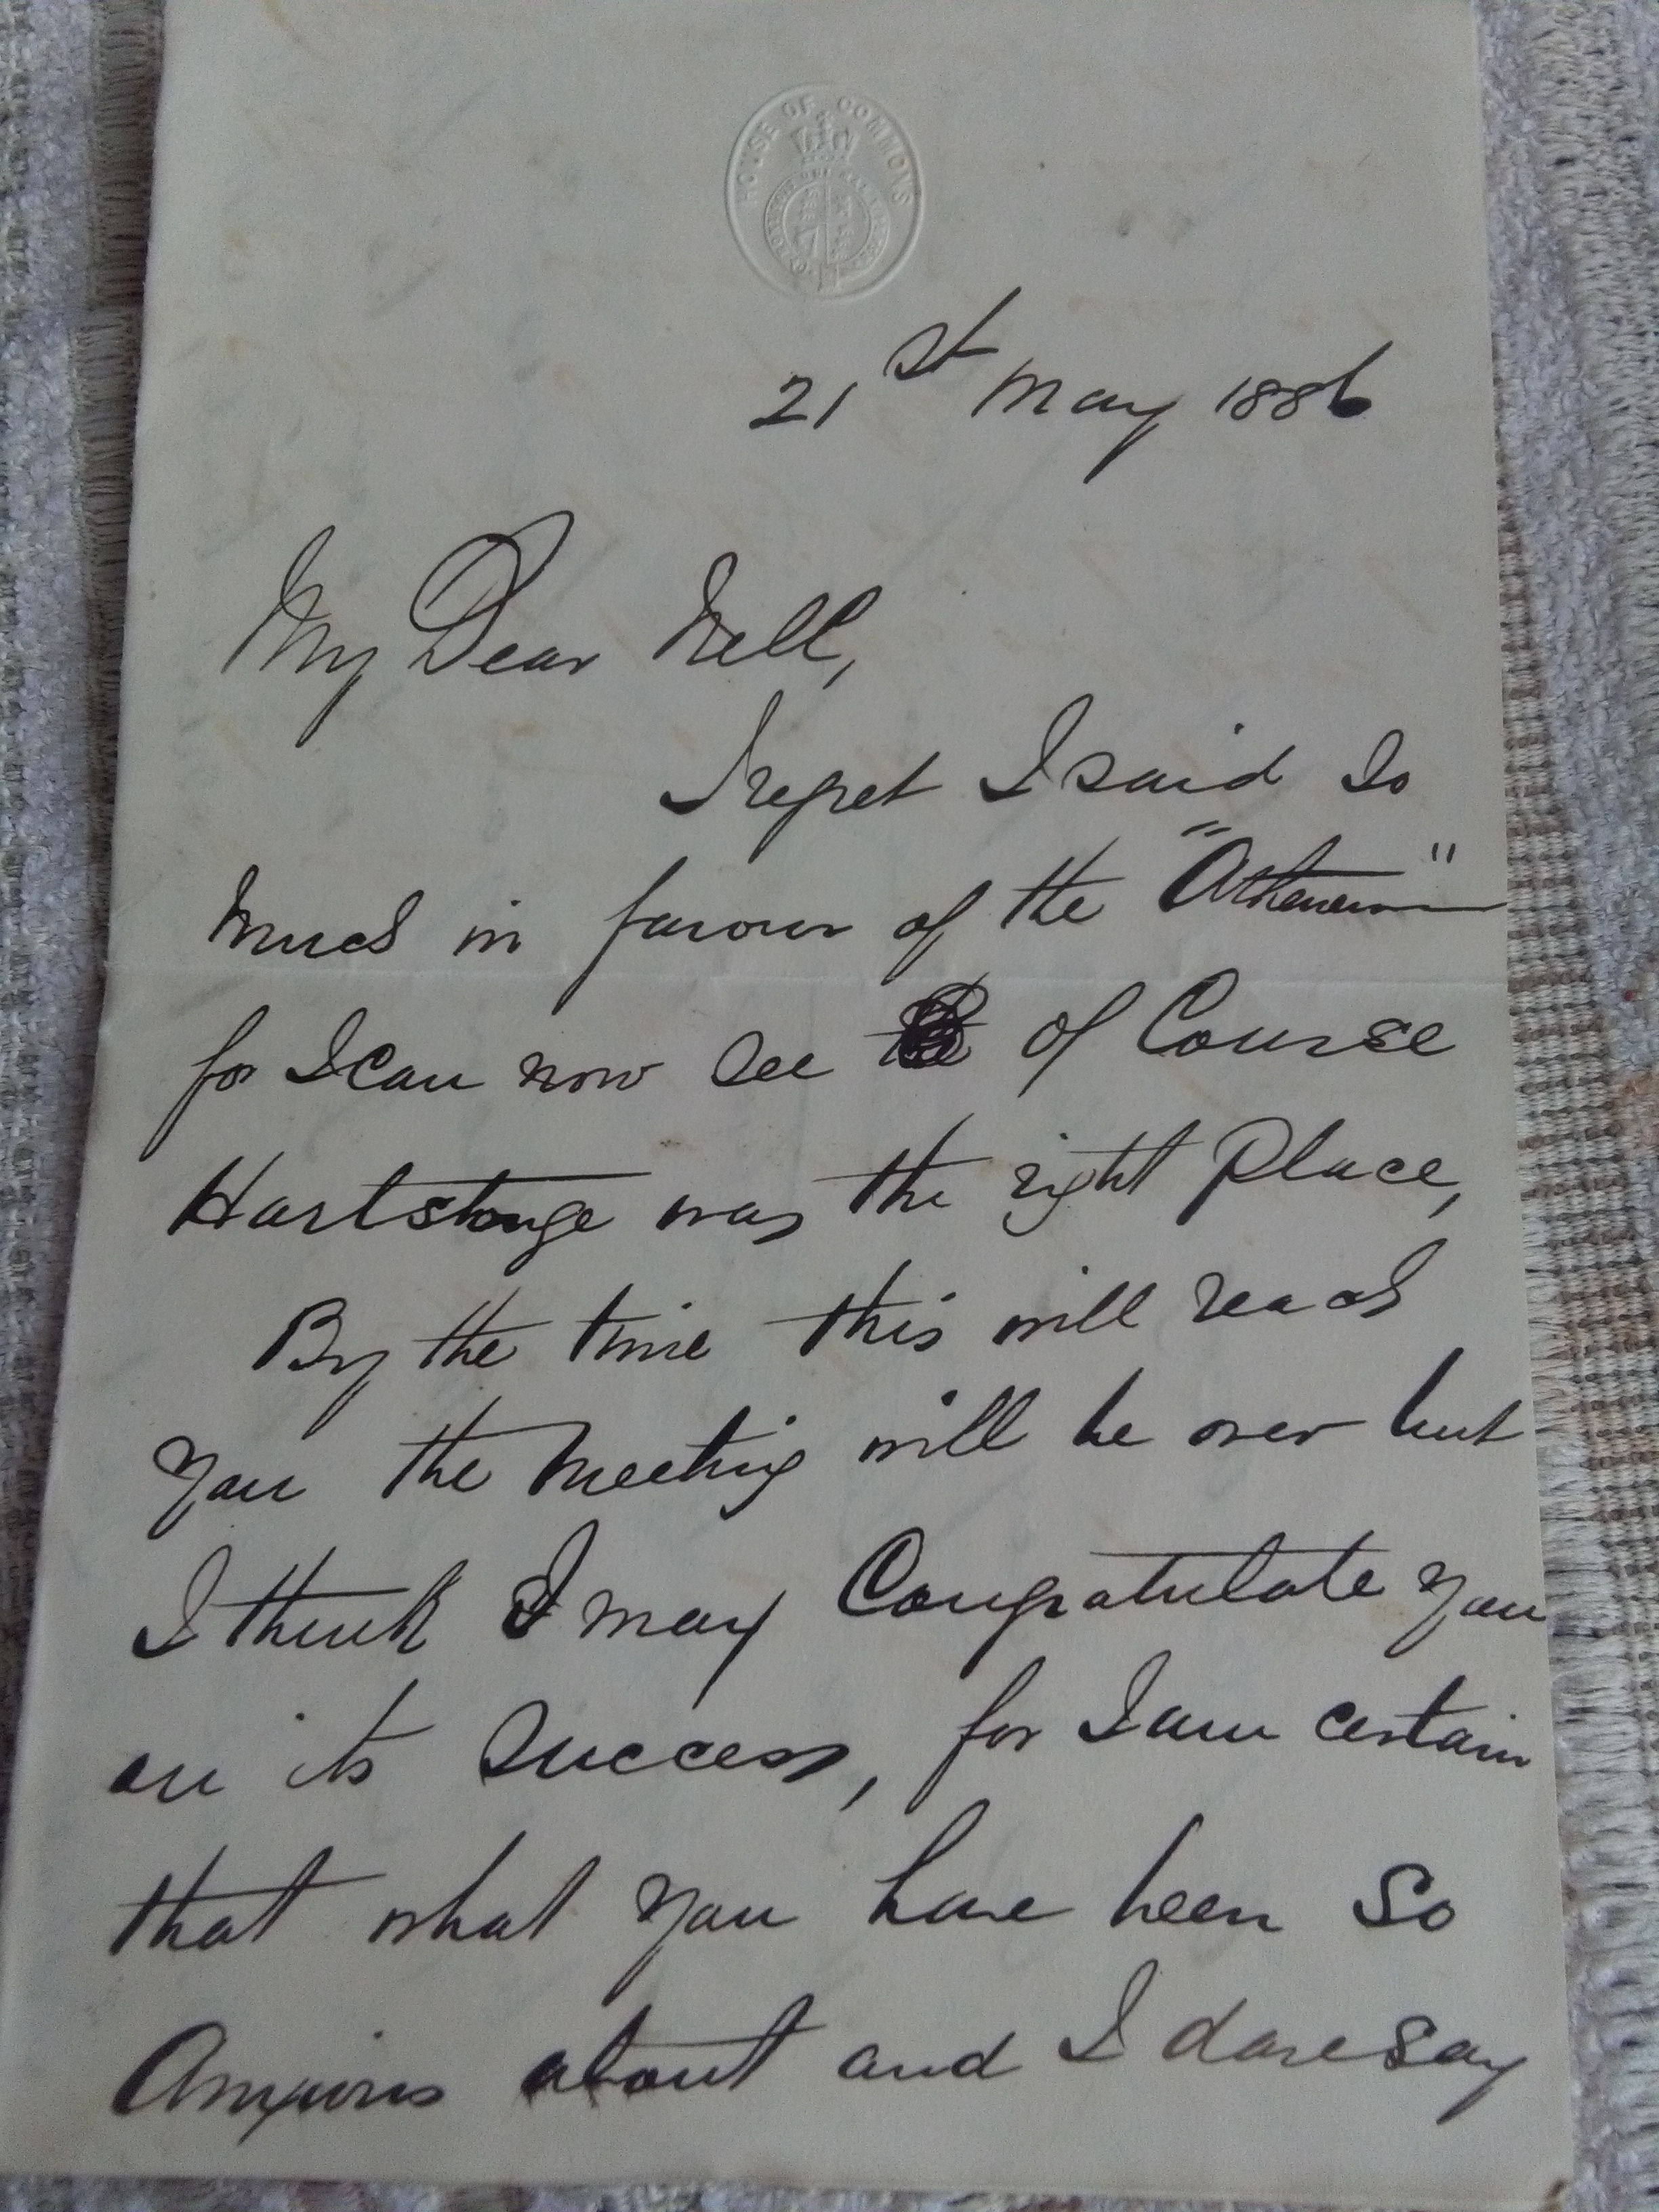 HOUSE OF COMMONS
21st May 1886
My Dear Nell,
I regret I said so
much in favour of the "Athenaeum"
for I can now see of Course
Hartstonge was the right Place,
By the time this will reach
you the Meeting will be over but
I think I may Congratulate you
on its Success, for I am certain
that what you have been so
Anxious about and I daresay